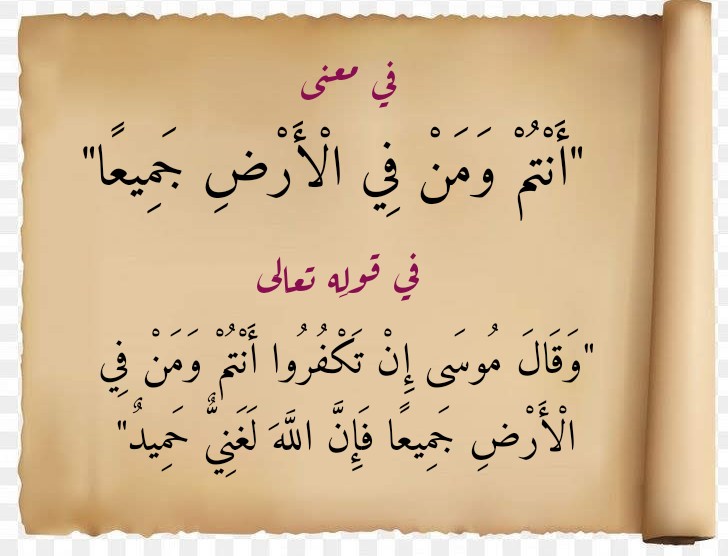 في معنى
"أَنْتُمْ وَمَنْ فِي الْأَرْضِ جَمِيعًا"
في قوله تعالى
"وَقَالَ مُوسَى إِنْ تَكْفُرُوا أَنْتُمْ وَمَنْ فِي
الْأَرْضِ جَمِيعًا فَإِنَّ اللَّهَ لَغَنِيٌّ حَمِيدٌ"